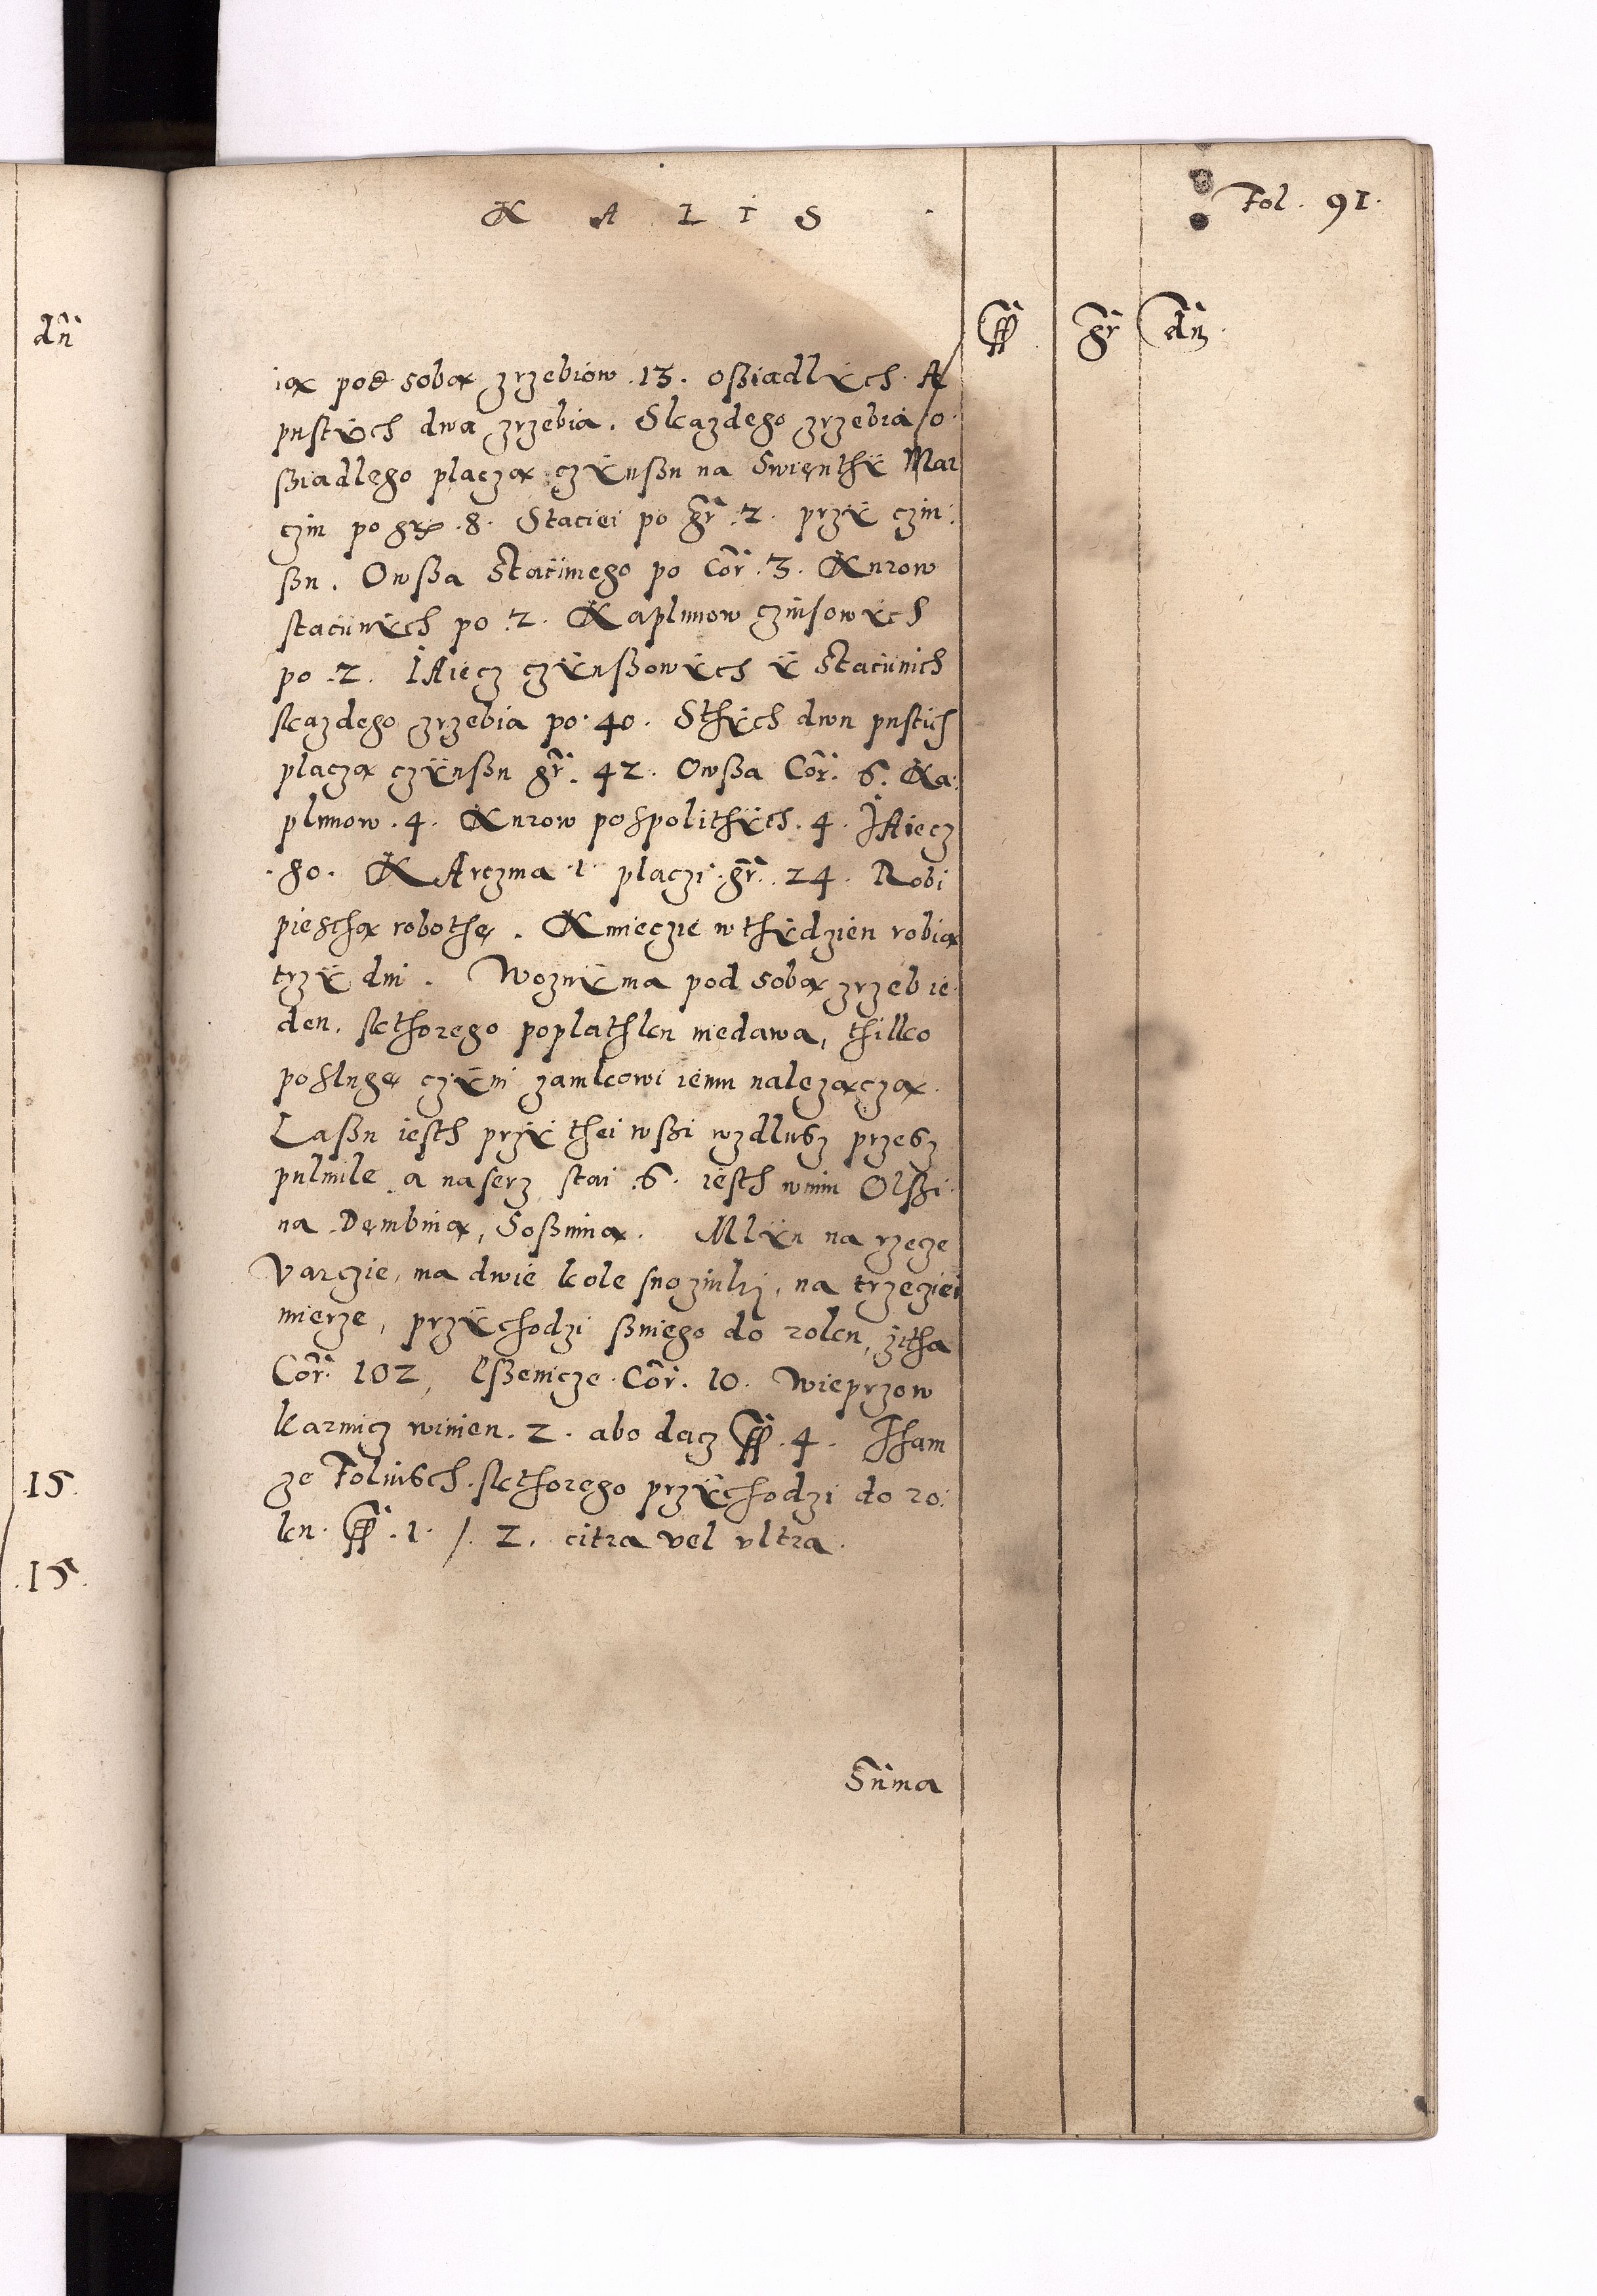 K A L I S
Fol. 91.
dñ
ff gr dn
ią pod sobą zrzebiow .13. oßiadlÿch. A
pustÿch dwa zrzebia. Skazdego zrzebia o
ßiadlego placzą czÿnßu na Swięnthÿ Mar
czin po grx .8. Staciei po gr .2. przÿ czin:
ßu. Owßa Staciinego po Cor .3. Kurow
staciinÿch po .2. Kaplunow czinsowÿch
po .2. IAiecz czÿnßowÿch ÿ Staciinich
skazdego zrzebia po .40. Sthÿch dwu pustich
placzą czÿnßu gr. 42. Owßa Cor. 6. Ka:
plunow .4. Kurow pospolithÿch .4. IAiecz
.80. KArczma .1. placzi .gr. .24. Robi
pieschą robothę. Kmieczie w thÿdzien robią
trzÿ dni. Woznÿ ma pod sobą zrzeb ie
den, skthorego poplathku niedawa, thilko
poslugę czÿni zamkowi iemu nalezączą.
Laßu iesth przÿ thei wßi wzdlusz przesz
pulmile a naserz stai .6. iesth wnim Olßi
na Dęmbiną, Soßniną. Mlÿn na rzecze
Varczie, ma dwie kole , na trzecziei
mierze, przÿchodzi ßniego do roku, zitha
Cor. 102, Pßenicze Cor. 10. Wieprzow
karmicz winien .2. abo dacz ff .4. Tham
ze Foliusch skthorego przÿchodzi do ro:
ku ff .1. /. 2. citra vel ultra.
.15.
.15.
Suma